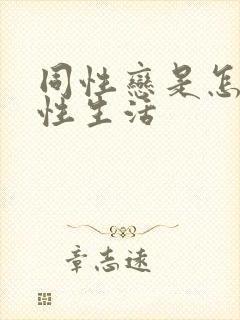 同性戀是怎
性生活
章志遠